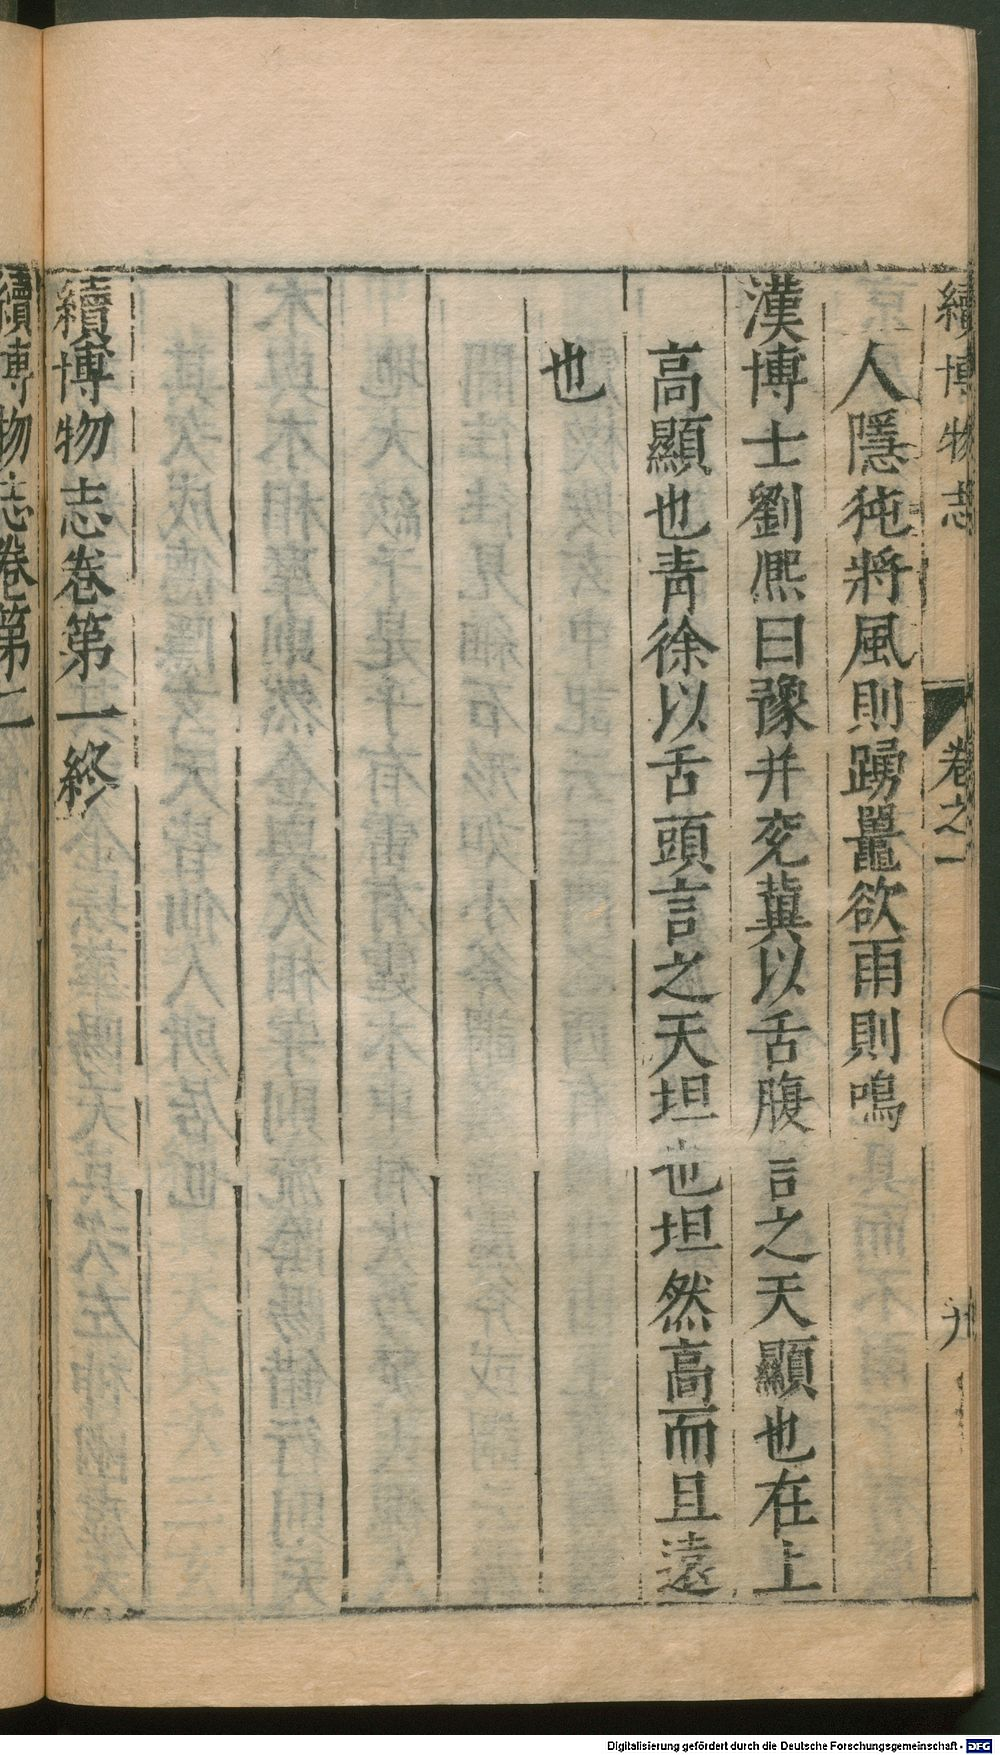 續博物志 卷之一 九
人隱㹠將風則踴鼉欲雨則鳴
漢博士劉熈曰豫并兖冀以舌腹言之天顯也在上
高顯也青徐以舌頭言之天坦也坦然高而且遠
也
續博物志卷第一終
續博物志卷第二
Digitalisierung gefördert durch die Deutsche Forschungsgemeinschaft - DFG